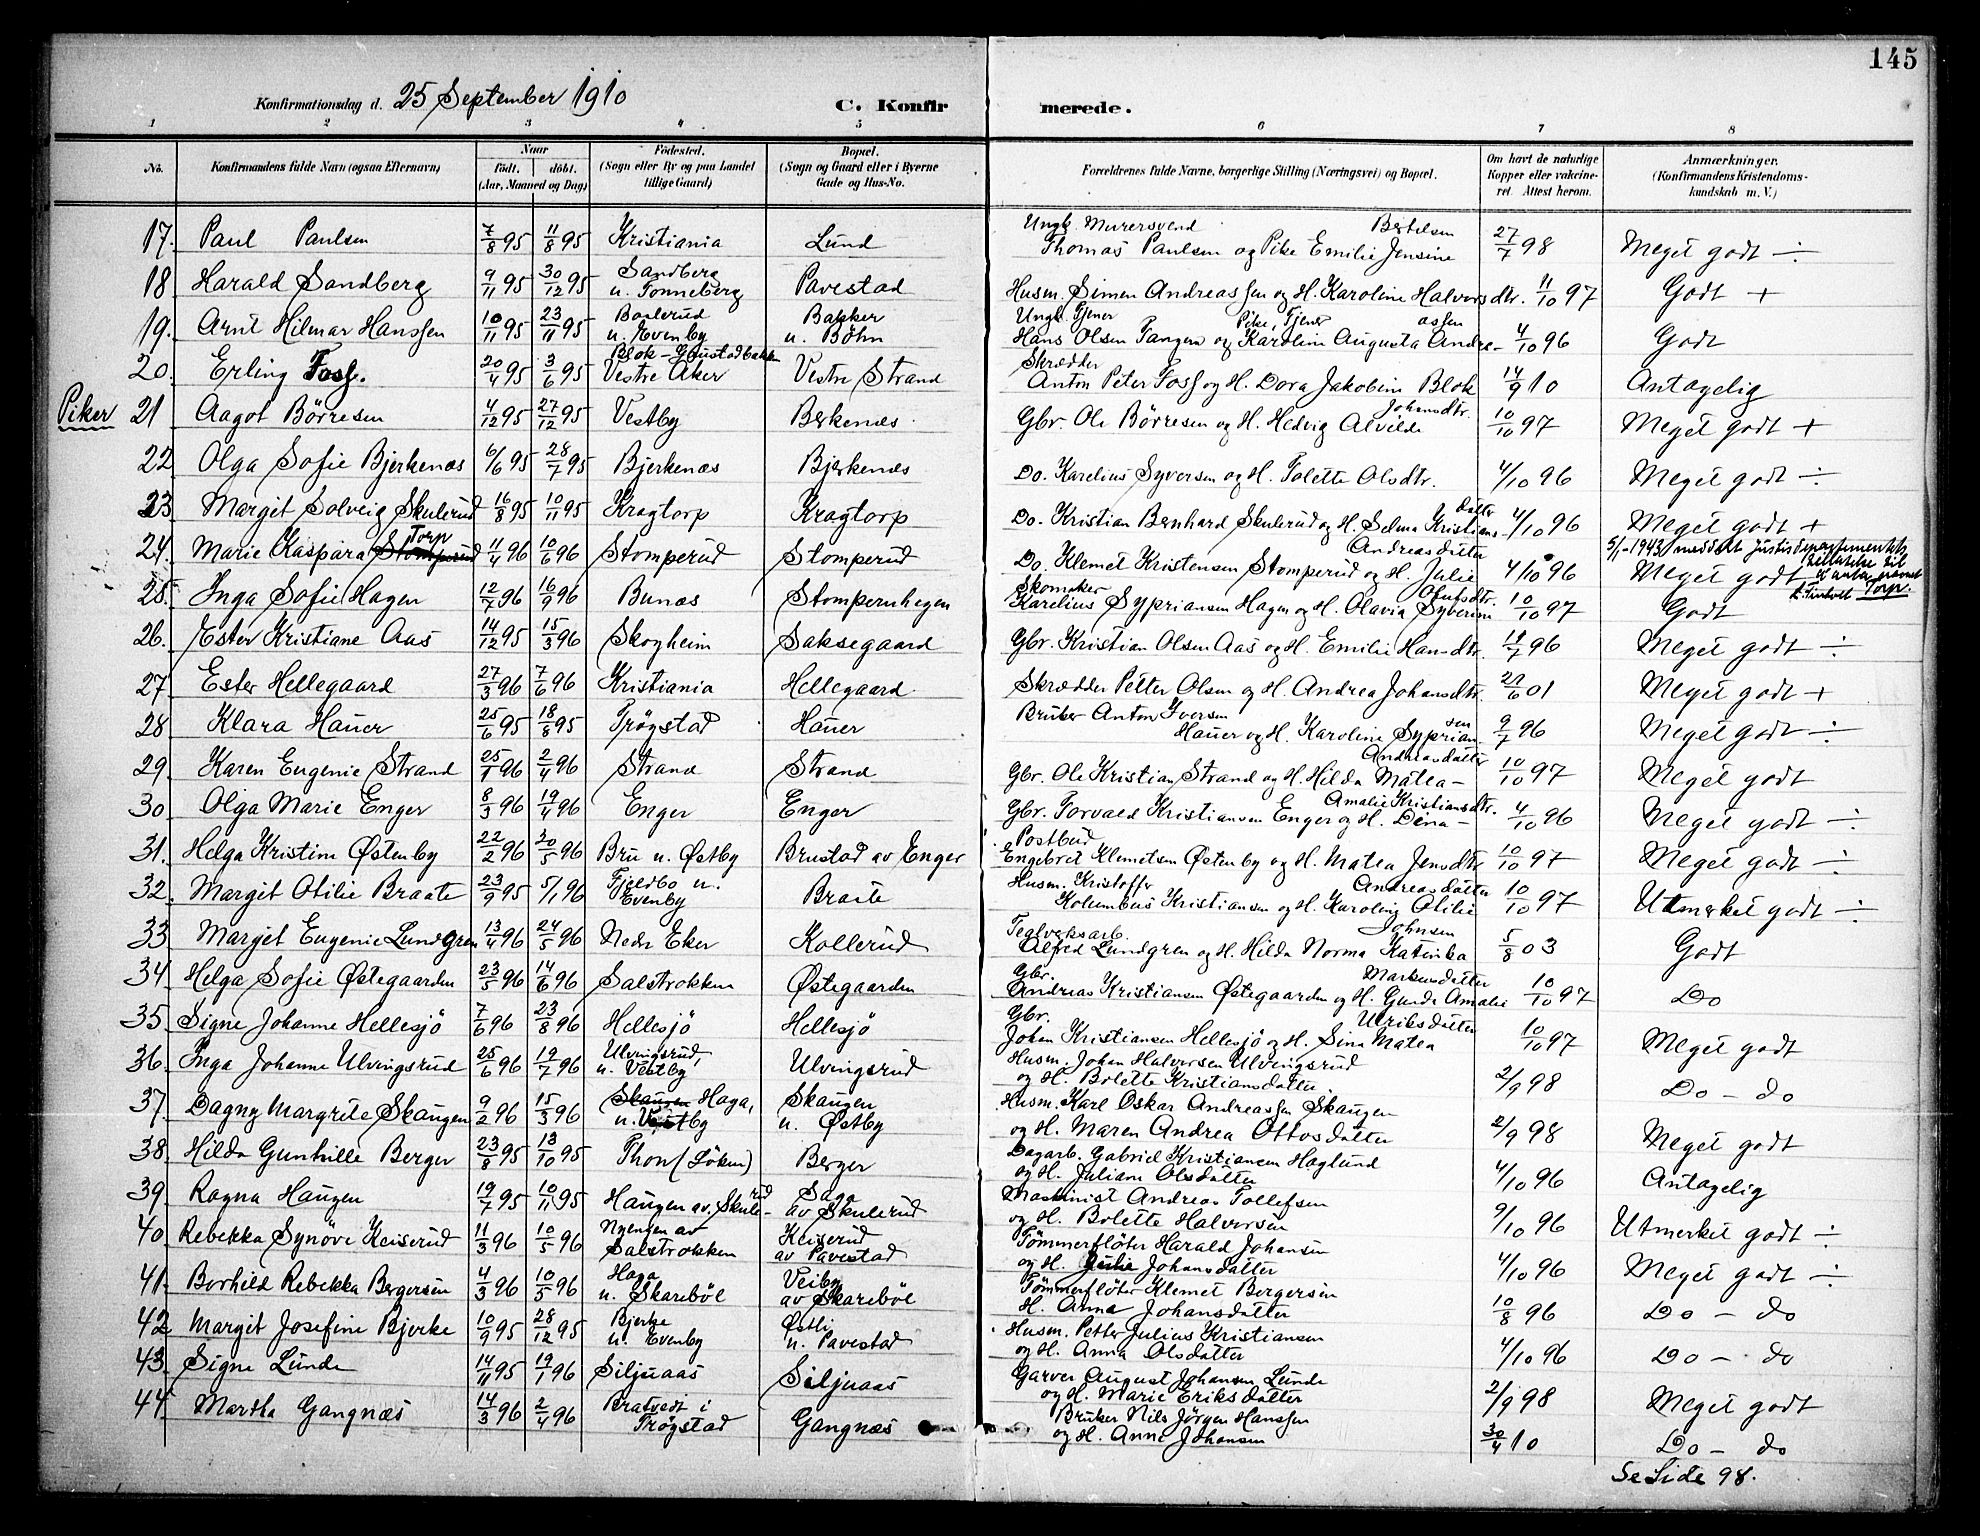 145
Konfirmationsdag d. 25 September 1910 C. Konfirmerede.
1 2 3 4 5 6 7 8
No. Konfirmandens fulde Navn (ogsaa Efternavn) Naar født. døbt. (Aar, Maaned og Dag) Fødested. (Sogn eller By og paa Landet tillige Gaard) Bopæl. (Sogn og Gaard eller i Byerne Gade og Hus-No. Forældrenes fulde Navne, borgerlige Stilling (Næringsvei) og Bopæl. Om havt de naturlige Kopper eller vaccineret. Attest herom. Anmærkninger. (Konfirmandens Kristendomskundskab m. V.)
17. Paul Paulsen 7/8 95 11/8 95 Kristiania Lund Ungk. Murersvend Thomas Paulsen og Pike Emilie Jensine Bertelsen 27/7 98 Meget godt ÷
18 Harald Sandberg 9/11 95 30/12 95 Sandberg u. Tonneberg Pavestad Husm. Simen Andreassen og H. Karoline Halvorsdtr. 11/10 97 Godt +
19. Arnt Hilmar Hanssen 10/11 95 23/11 95 u. Evenby Bakker u. Böhn Ungk. Tjener Hans Olsen Tangen og Pike, Tjener Karoline Augusta Andreassen 4/10 96 Godt
20. Erling Foss. 20/4 95 3/6 95 Blok-Gaustadbakken Vestre Aker Vestre Strand Skrædder Anton Peter Foss og H. Dora Jakobine Blok 14/9 10 Antagelig
Piker 21 Aagot Börresen 4/12 95 27/12 95 Vestby Berkenæs Gbr. Ole Börresen og H. Hedvig Alvilde Johansdtr. 10/10 97 Meget godt +
22 Olga Sofie Bjerkenæs 6/6 95 28/7 95 Bjerkenæs Bjerkenæs Do. Karelius Syversen og H. Tolette Olsdtr. 4/10 96 Meget godt ÷
23 Margit Solveig Skulerud 16/8 95 10/11 95 Kragtorp Kragtorp Do. Kristian Bernhard Skulerud og H. Selma Kristiansdatter 4/10 96 Meget godt +
24. Marie Kaspara Stomperud Torp 11/4 96 10/6 96 Stomperud Stomperud Do. Klemet Kristensen Stomperud og H. Julie Andreasdatter 4/10 96 Meget godt 5/1-1943 meddelt Justisdepartementets tillatelse til at anta navnet Torp.
25. Inga Sofie Hagen 12/7 96 16/9 96 Bunæs Stompernhegen Skomaker Karelius Sypriansen Hagen og H. Olavia Syverine Olufsdtr. 10/10 97 Godt
26. Ester Kristiane Aas 14/12 95 15/3 96 Skogheim Saksegaard Gbr. Kristian Olsen Aas og H. Emilie Hansdtr. 11/7 96 Meget godt ÷
27 Ester Hellegaard 27/3 96 7/6 96 Kristiania Hellegaard Skrædder Petter Olsen og H. Andrea Johansdtr. 21/6 01 Meget godt +
28 Klara Hauer 25/6 95 18/8 95 Trögstad Hauer Bruker Anton Iversen Hauer og H. Karoline Spriansen 9/7 96 Meget godt ÷
29. Karen Eugenie Strand 25/1 96 2/4 96 Strand Strand Gbr. Ole Kristian Strand og H. Hilda Matea Andreasdatter 10/10 97 Meget godt
30 Olga Marie Enger 8/3 96 19/4 96 Enger Enger Gbr. Torvald Kristiansen Enger og H. Dina Amalie Kristiansdtr. 4/10 96 Meget godt ÷
31. Helga Kristine Østenby 22/2 96 30/5 96 Bru u. Østby Brustad av Enger Postbud Engebret Klemetsen Østenby og H. Matea Jensdtr 10/10 97 Meget godt ÷
32. Margit Otilie Braate 23/9 95 5/1 96 Fjeldbo u. Evenby Braate Husm. Kristoffer Kolumbus Kristiansen og H. Karoline Otilie Andreasdatter 10/10 97 Utmerket godt ÷
33 Margit Eugenie Lundgren 13/4 96 24/5 96 Nedr Eker Kollerud Teglverksarb. Alfred Lundgren og H. Hilda Norma Katinka Johnsen 5/8 03 Godt
34 Helga Sofie Østegaarden 23/5 96 14/6 96 Salstrokken Østegaarden Gbr. Andreas Kristiansen Østegaarden og H. Gunda Amalie Markusdatter 10/10 97 Do
35 Signe Johanne Hellesjö 7/6 96 23/8 96 Hellesjö Hellesjö Gbr. Johan Kristiansen Hellesjö og H. Sina Matea Ulriksdatter 10/10 97 Meget godt
36 Inga Johanne Ulvingsrud 25/6 96 19/7 96 Ulvingsrud, u. Vestby Ulvingsrud Husm. Johan Halvorsen Ulvingsrud og H. Bolette Kristiansdatter. 2/9 98 Do - do
37 Dagny Margrete Skaugen 9/2 96 15/3 96 Skaugen Haga, u. Vestby Skaugen u. Østby Husm. Karl Oskar Andreassen Skaugen og H. Maren Andrea Ottosdatter 2/9 98 Meget godt
38. Hilda Gunhille Berger 23/8 95 13/10 95 Thon (Löken) Berger Dagarb. Gabriel Kristiansen Haglund og H. Juliane Olsdatter 4/10 96 Antagelig
39 Ragna Haugen 19/7 95 10/11 95 Haugen av Skulerud Saga av Skulerud Maskinist Andreas Tollefsen og H. Bolette Halvorsen 9/10 96 Utmerket godt ÷
40 Rebekka Synöve Keiserud 11/3 96 10/5 96 Nyengen av Salstrokken Keiserud av Pavestad Tömmerflöter Harald Johansen og H. Julie Johansdatter 4/10 96 Meget godt ÷
41. Borhild Rebekka Bergersen 4/3 96 10/5 96 Haga u. Skariböl Veiby av Skariböl Tömmerflöter Klemet Bergersen H. Anna Johansdatter 10/8 96 Do - do
42 Margit Josefine Bjerke 10/9 95 28/12 95 Bjerke u. Evenby Østli u. Pavestad Husm. Petter Julius Kristiansen og H. Anna Olsdatter 4/10 96 Do - do
43. Signe Lunde 14/11 95 19/1 96 Siljuaas Siljuaas Garver August Johansen Lunde og H. Marie Eriksdatter 2/9 98 Meget godt
44 Martha Gangnæs 14/3 96 2/4 96 Bratvedt i Trögstad Gangnæs Bruker Nils Jörgen Hanssen og H. Anne Johansen 30/4 10 Do - do
Se Side 98.